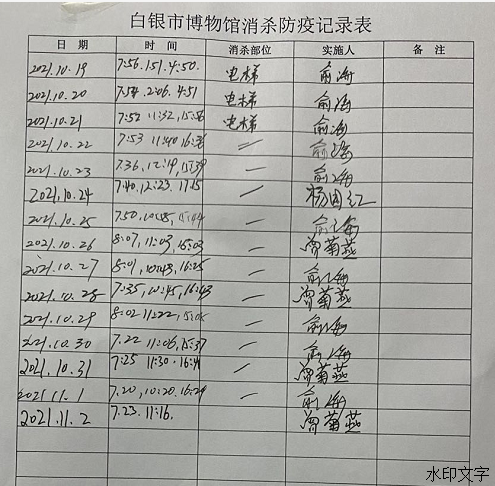 白银市博物馆消杀防疫记录表
日 期 时 间 消杀部位 实施人 备 注
2021.10.19 7:56. 电梯 俞海
2021.10.20 电梯 俞海
2021.10.21 7:52 11:32, 电梯 俞海
2021.10.22 7:53 11:40 俞海
2021.10.23 7:36, 俞海
2021.10.24 7:40, 12:23. 17:15 杨国红
2021.10.25 7:50, 俞海
2021.10.26 8:07, 11:03, 15:03 曾菊燕
2021.10.27 8:01, 10:43, 16:25 俞海
2021.10.28 7:35, 10:45, 16:43 曾菊燕
2021.10.29 8:02 11:22, 俞海
2021.10.30 7.22 11:06, 15:37 俞海
2021.10.31 7:25 11:30. 曾菊燕
2021.11.1 7.20, 10:20. 16:24 俞海
2021.11.2 7.23. 11:16. 曾菊燕
水印文字